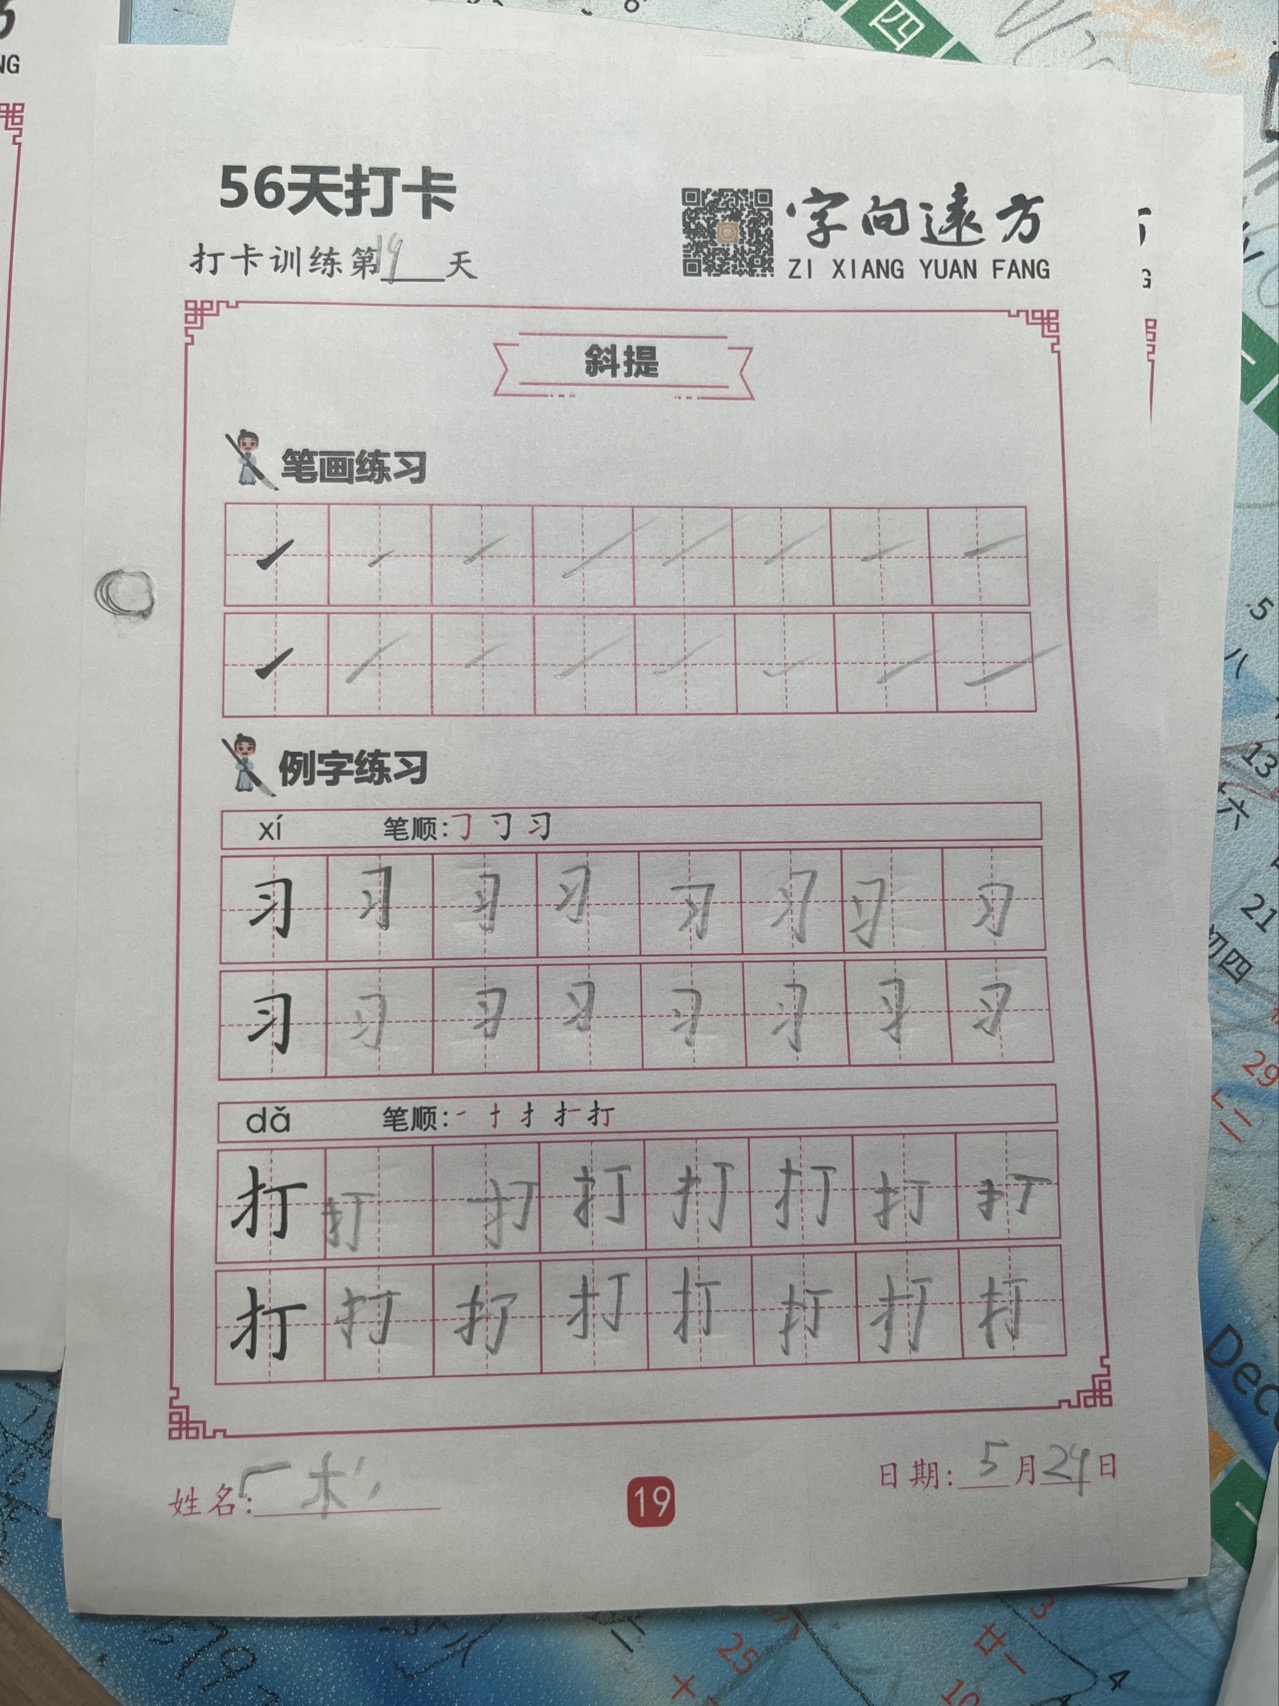 56天打卡
打卡训练第19天
字向远方
ZI XIANG YUAN FANG
斜提
笔画练习
例字练习
xí 笔顺:㇆ 刁 习
习 习 习 习 习 习 习 习
习 习 习 习 习 习 习 习
dǎ 笔顺:一 十 扌 打
打 打 打 打 打 打 打 打
打 打 打 打 打 打 打 打
姓名:
19
日期:5月29日
NG
四
5
八
13
六
21
初四
29
十二
Dec
3
廿一
25
10
4